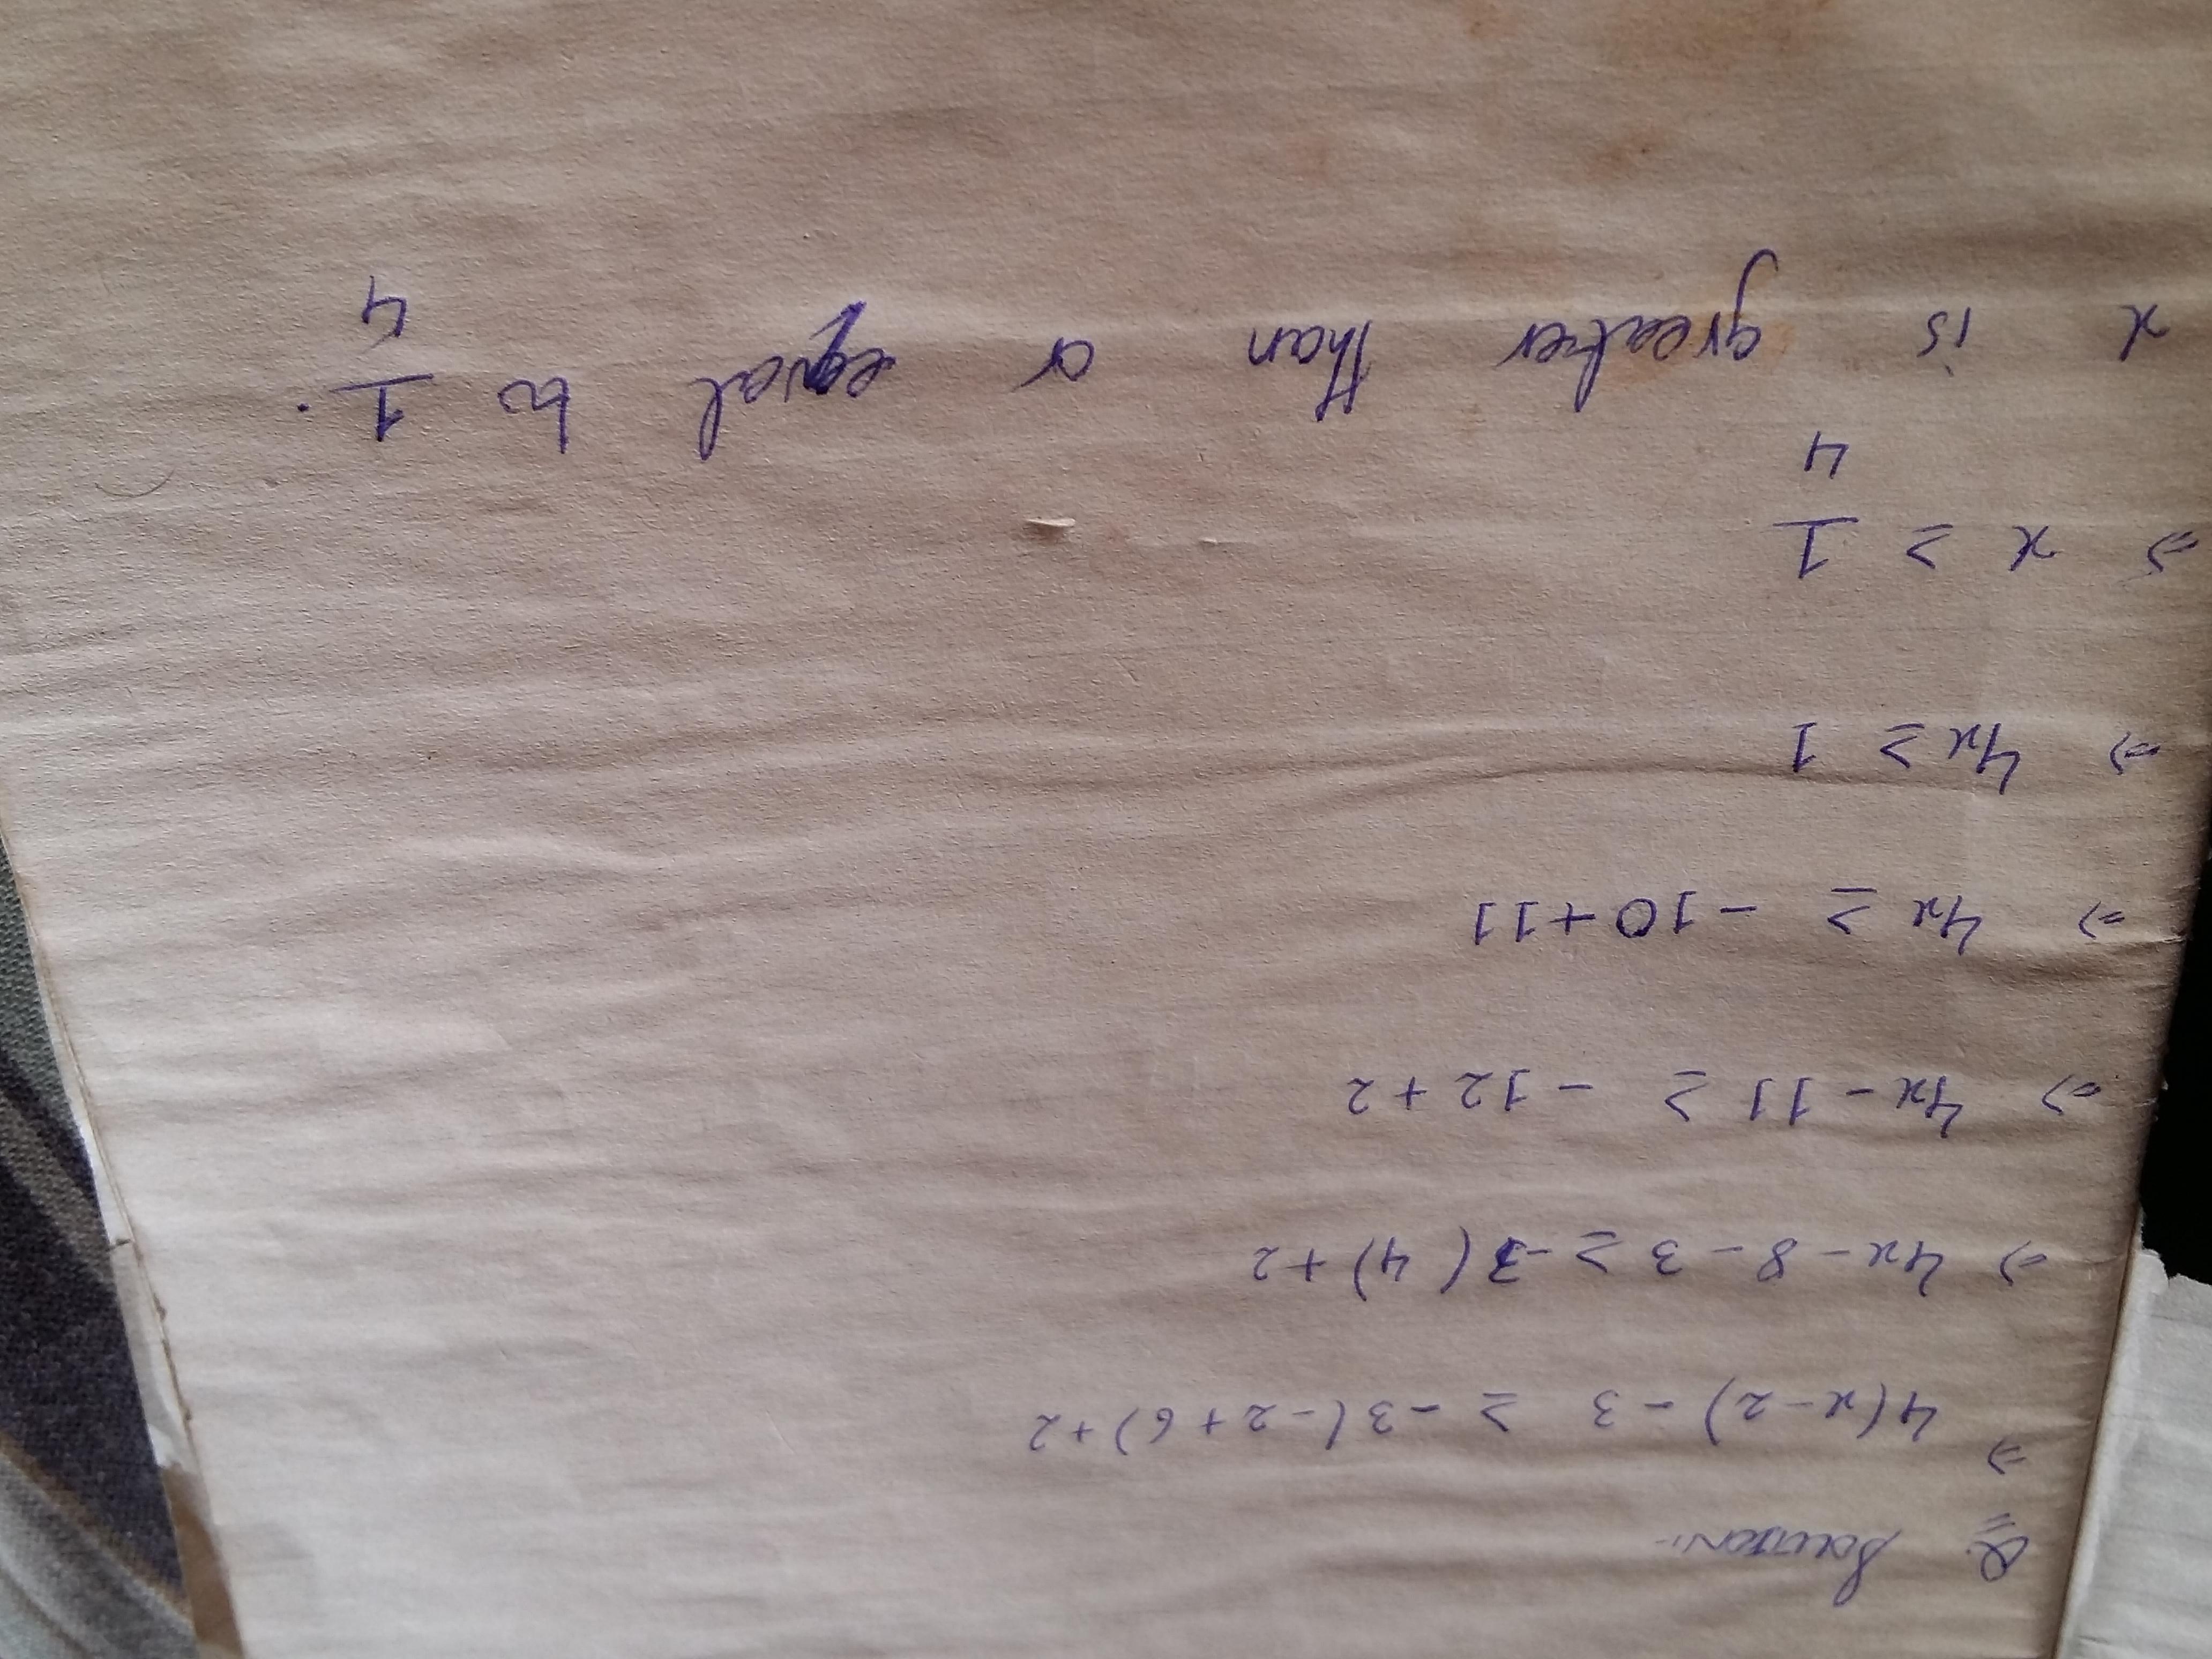 Q. Solution:-
⇒ 4(x-2) - 3 ≥ -3(-2+6)+2
⇒ 4x - 8 - 3 ≥ -3(4)+2
⇒ 4x - 11 ≥ -12+2
⇒ 4x ≥ -10+11
⇒ 4x ≥ 1
⇒ x ≥ 1/4
x is greater than or equal to 1/4.